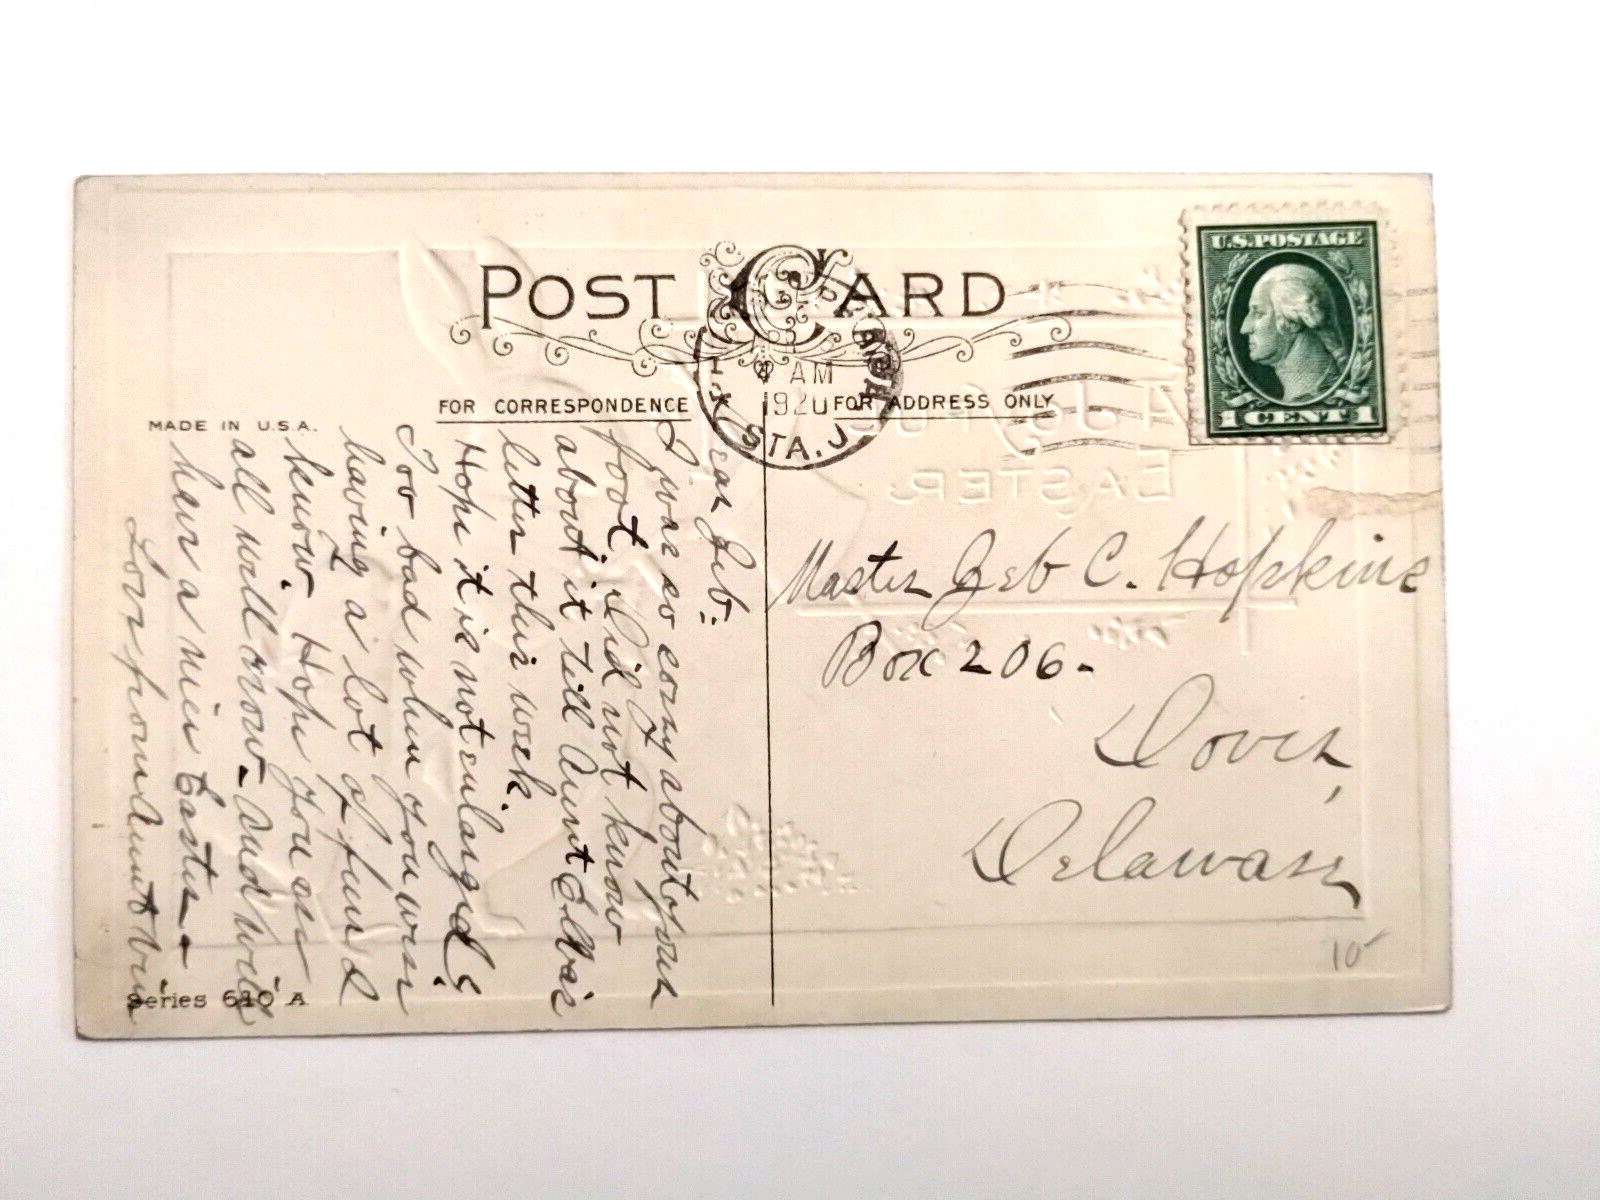 POST CARD
FOR CORRESPONDENCE
FOR ADDRESS ONLY
MADE IN U.S.A.
U.S. POSTAGE
1 CENT 1
AM
1920
STA. J
A Joyful
EASTER
Dear Jeb:
I was so sorry about your
foot. Did not know
about it till Aunt Elva's
letter this week.
Hope it is not enlarged &
Too bad when you were
having a lot of fun I
know. Hope you are
all well now - and will
have a nice Easter -
Love from Aunt
Master Jeb C. Hopkins
Box 206-
Dover,
Delaware
Series 640 A
10